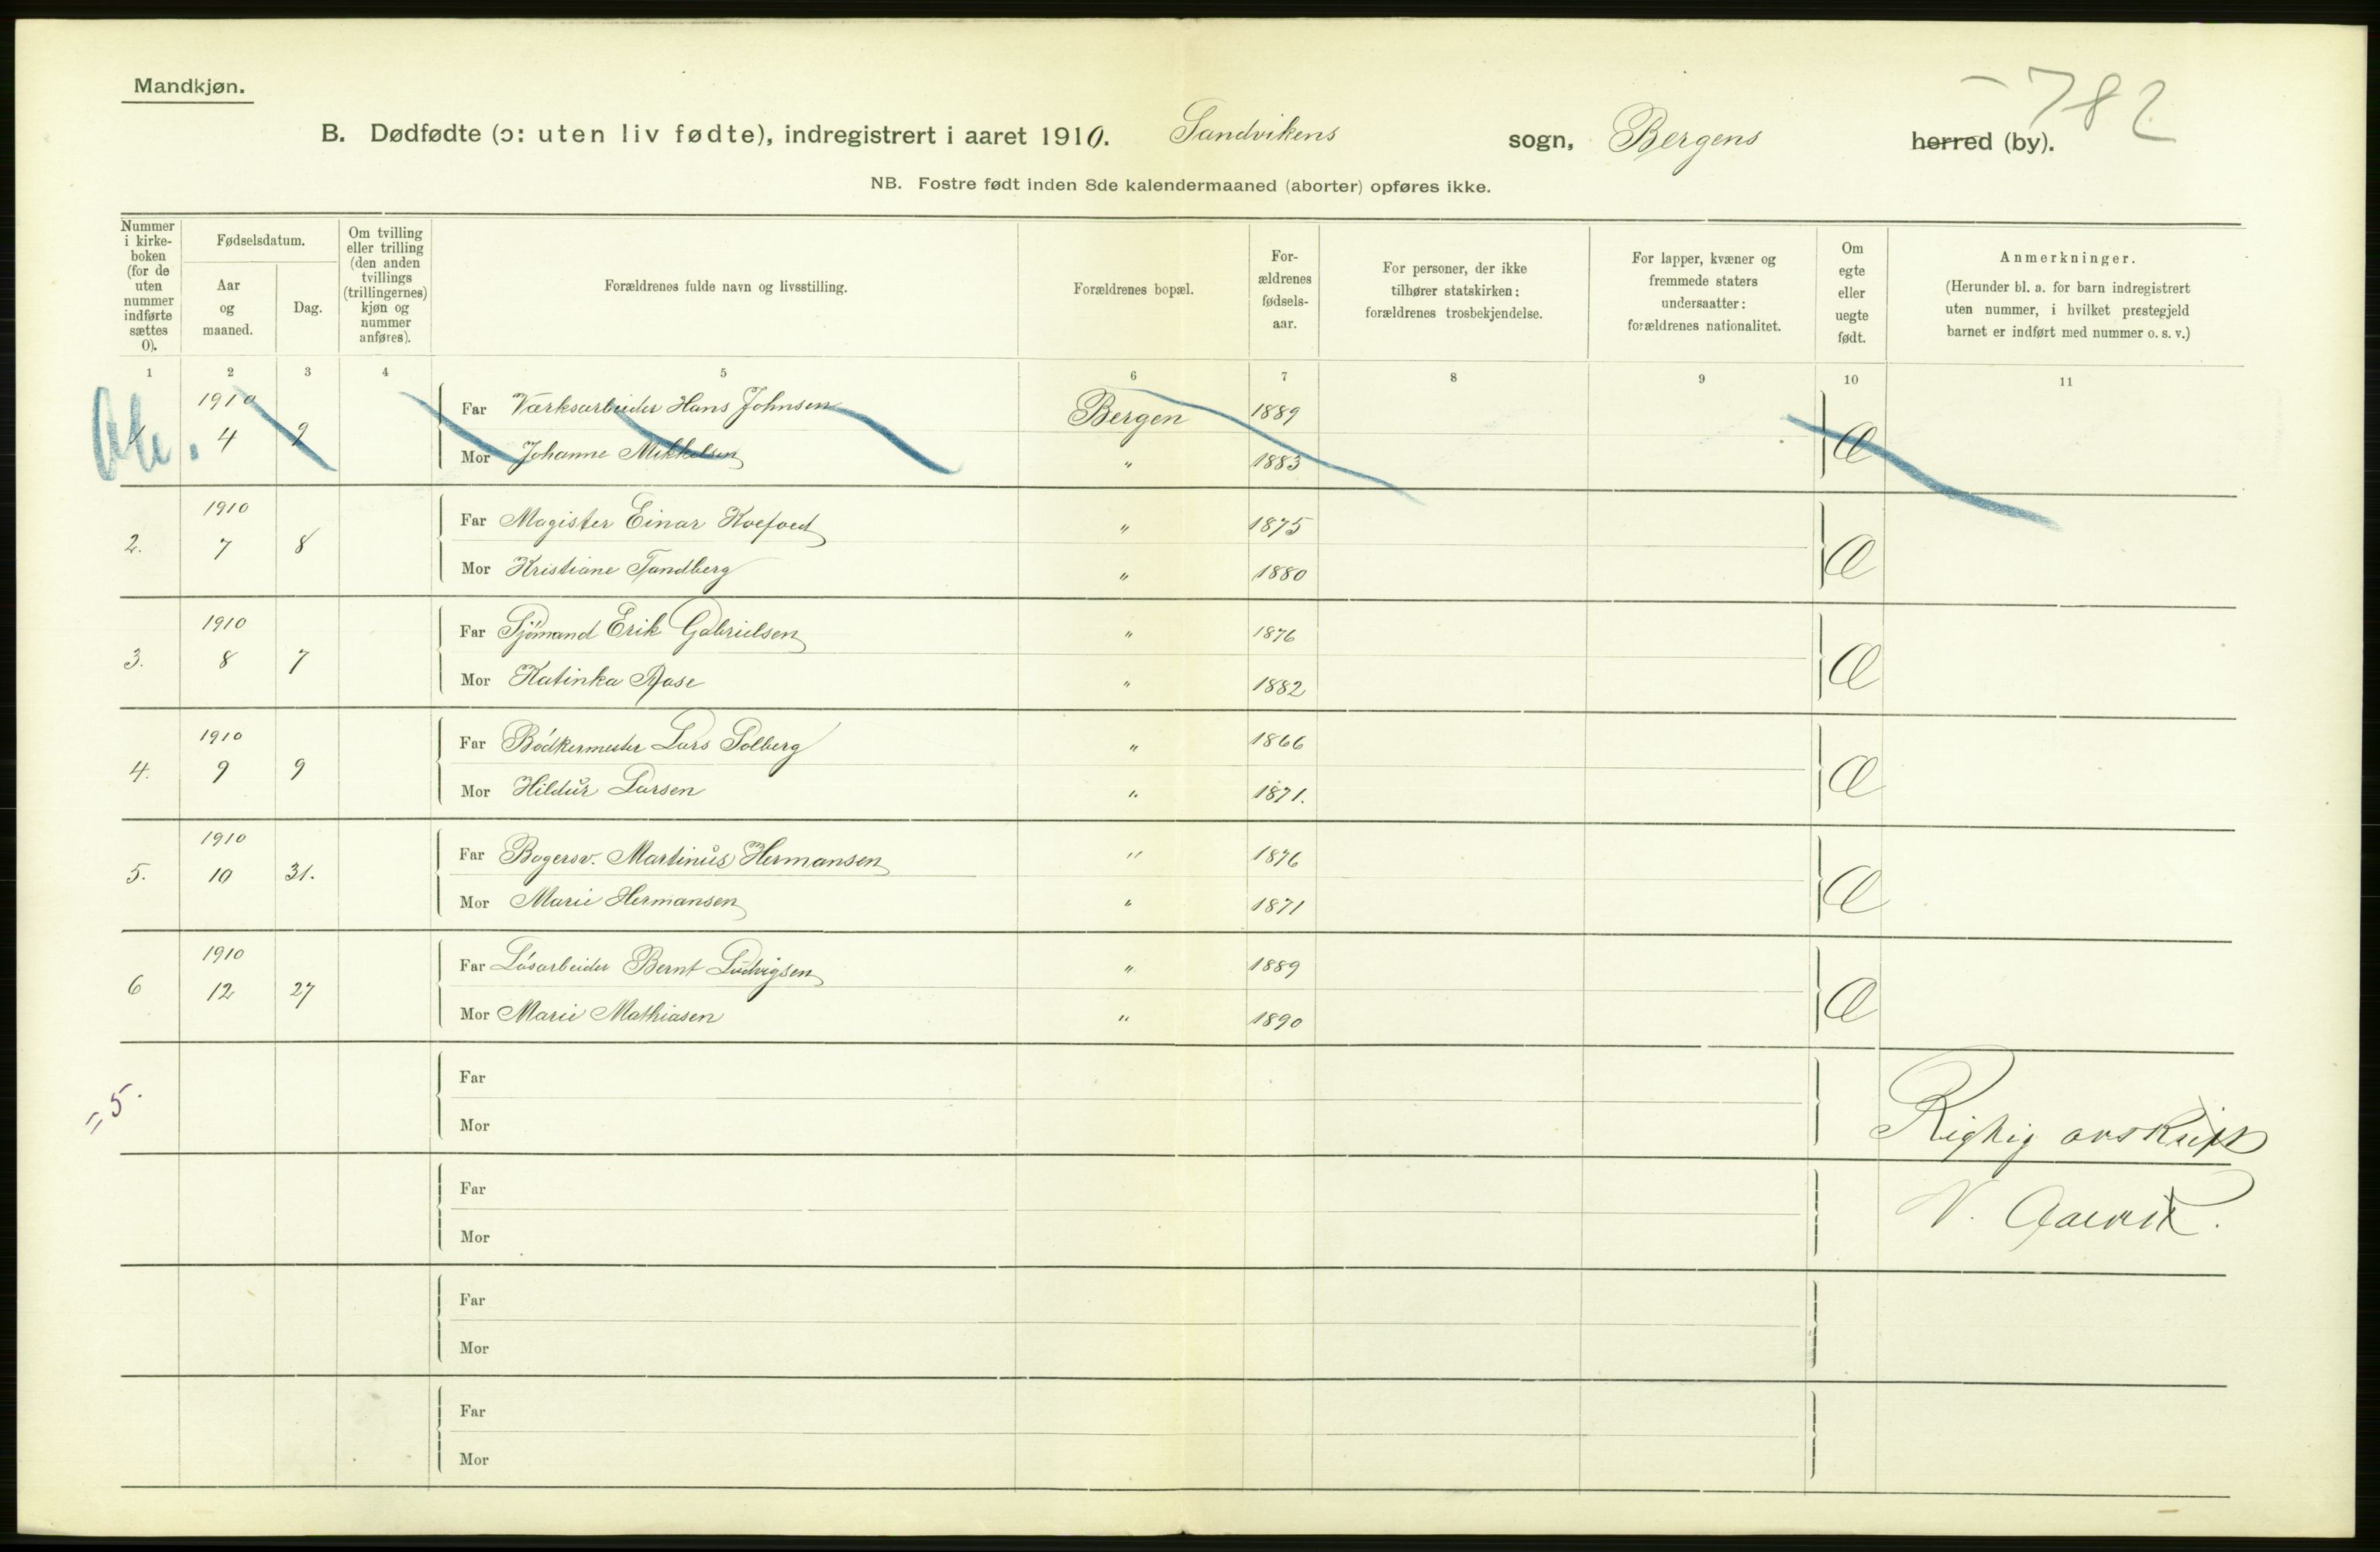 Mandkjøn.
- 782
B. Dødfødte (ɔ: uten liv fødte), indregistrert i aaret 1910. Sandvikens sogn, Bergens herred (by).
NB. Fostre født inden 8de kalendermaaned (aborter) opføres ikke.
Nummer i kirke-boken (for de uten nummer indførte sættes 0).
Fødselsdatum.
Aar og maaned.
Dag.
Om tvilling eller trilling (den anden tvillings (trillingernes) kjøn og nummer anføres).
Forældrenes fulde navn og livsstilling.
Forældrenes bopæl.
For-ældrenes fødsels-aar.
For personer, der ikke tilhører statskirken: forældrenes trosbekjendelse.
For lapper, kvæner og fremmede staters undersaatter: forældrenes nationalitet.
Om egte eller uegte født.
Anmerkninger.
(Herunder bl. a. for barn indregistrert uten nummer, i hvilket prestegjeld barnet er indført med nummer o. s. v.)
1 2 3 4 5 6 7 8 9 10 11
1910 Far Værksarbeider Hans Johnsen Bergen 1889
1 4 9 Mor Johanne Mikkelsen " 1883 Æ
1910 Far Magister Einar Koefoed " 1875
2. 7 8 Mor Kristiane Tandberg " 1880 Æ
1910 Far Sjømand Erik Gabrielsen " 1876
3. 8 7 Mor Katinka Aase " 1882 Æ
1910 Far Bødkermester Lars Solberg " 1866
4. 9 9 Mor Hildur Larsen " 1871. Æ
1910 Far Bagersv. Martinus Hermansen " 1876
5. 10 31. Mor Marie Hermansen " 1871 Æ
1910 Far Løsarbeider Bernt Ludvigsen " 1889
6 12 27 Mor Marie Mathiasen " 1890 Æ
Far
= 5. Mor
Rigtig avskrift
Far
Mor
Far
Mor
Far
Mor